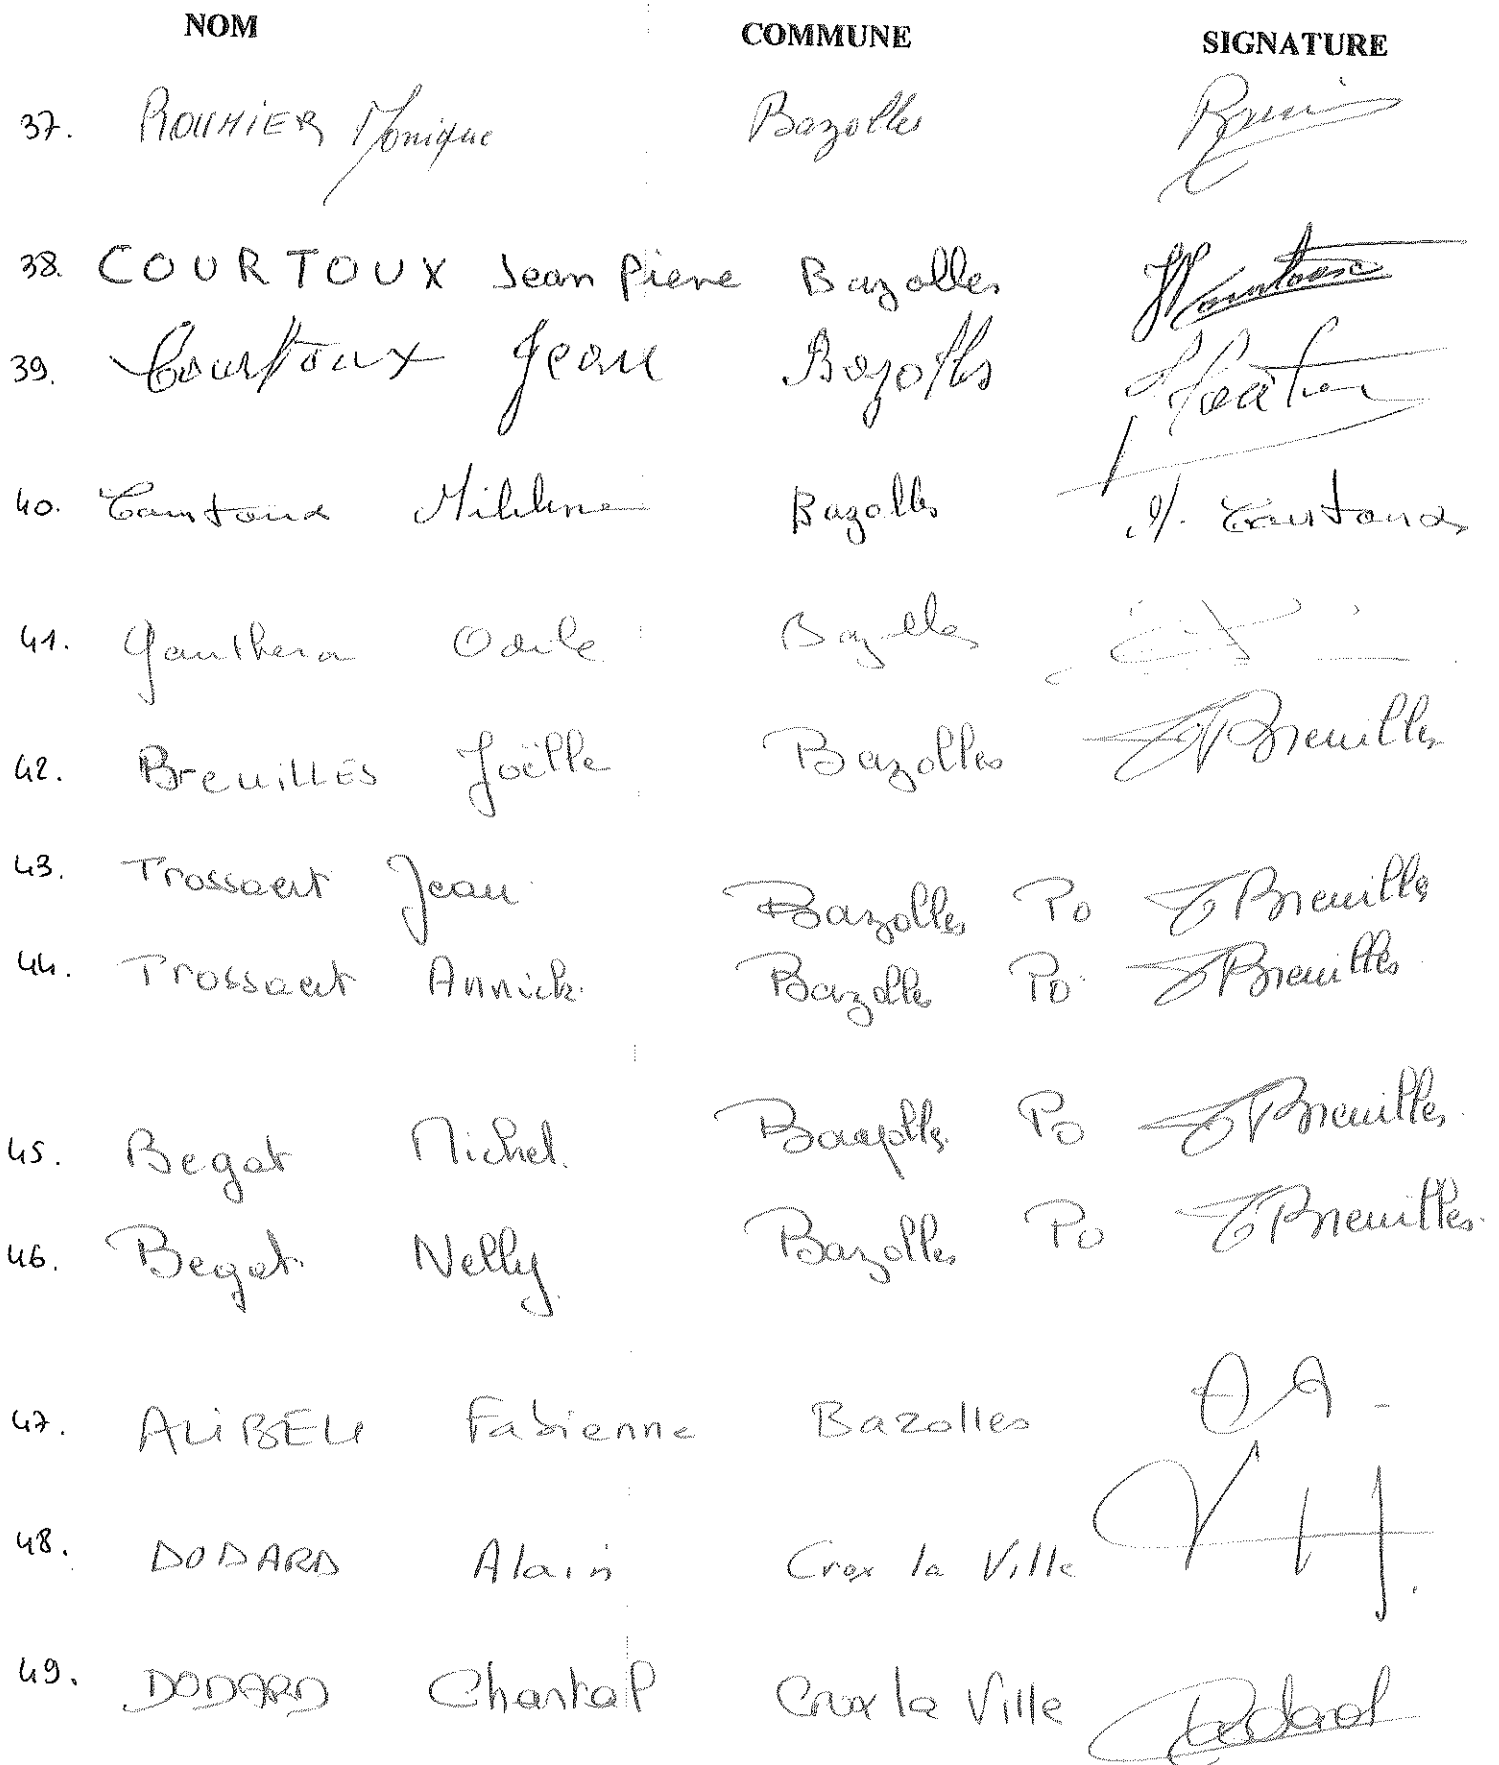 NOM COMMUNE SIGNATURE
37. ROUMIER Monique Bazolles
38. COURTOUX Jean Pierre Bazolles
39. Courtoux Jean Bazolles
40. Courtoux Bazolles
41. Odile Bazolles
42. BreuiLLES Joëlle Bazolles Breuilles
43. Trossaert Jean Bazolles Po Breuilles
44. Trossaert Annick Bazolles Po Breuilles
45. Begat Michel. Bazolles Po Breuilles
46. Begat Nelly Bazolles Po Breuilles
47. Fabienne Bazolles
48. DODARD Alain Crux la Ville
49. DODARD Chantal Crux la Ville Dodard